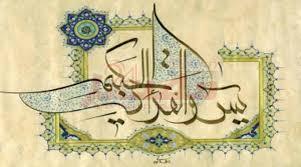 یس والقرآن الحکیم